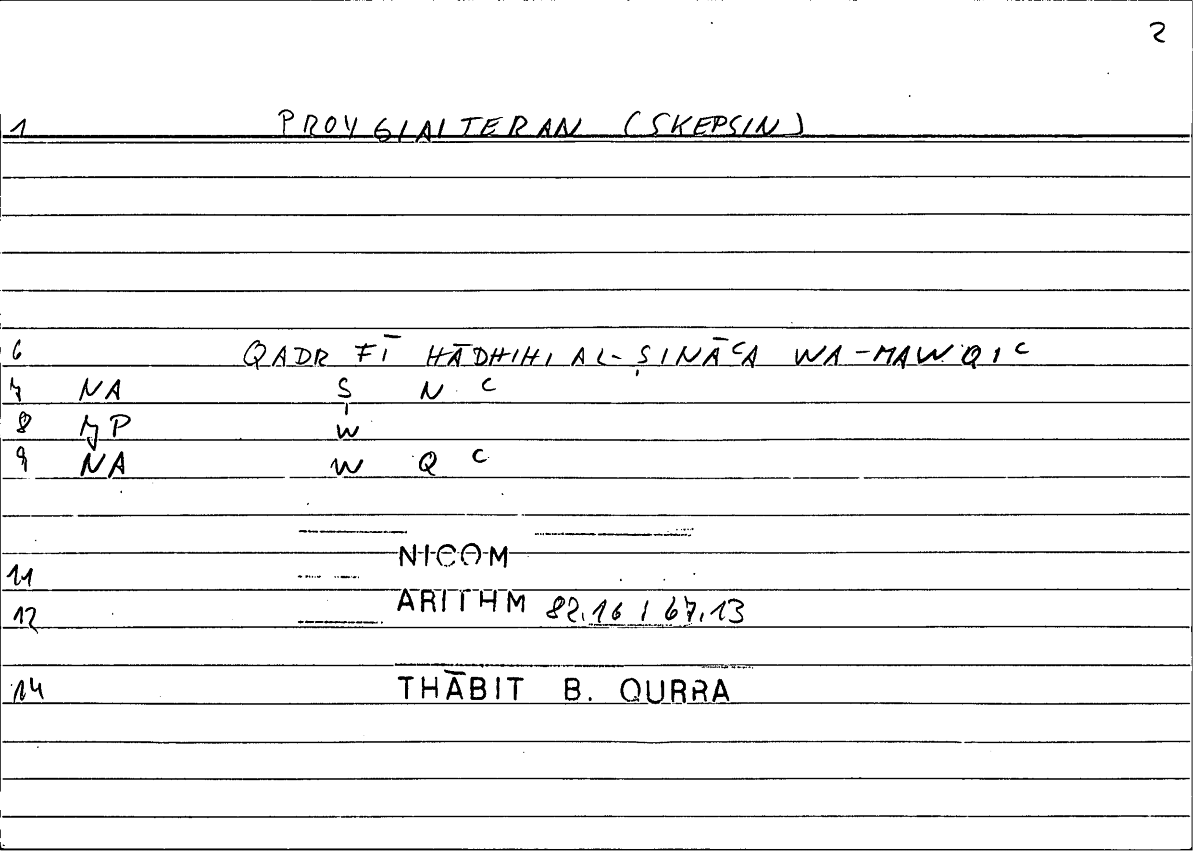 2
1 PROYGIAITERAN (SKEPSIN)
6 QADR FĪ HĀDHIHI AL-ṢINĀʿA WA-MAWQIʿ
7 NA Ṣ N ʿ
8 W
9 NA W Q ʿ
NICOM
11
ARITHM 82,16 / 67,13
12
14 THĀBIT B. QURRA